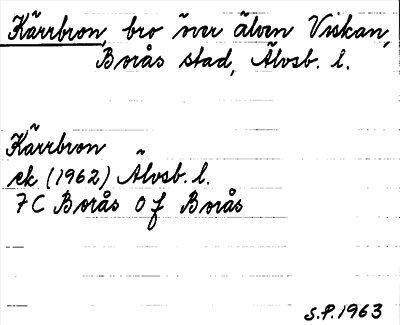 Kärrbron, bro över älven Viskan,
Borås stad, Älvsb. l.
Kärrbron
ek (1962) Älvsb. l.
7 C Borås Of Borås
S.P. 1963